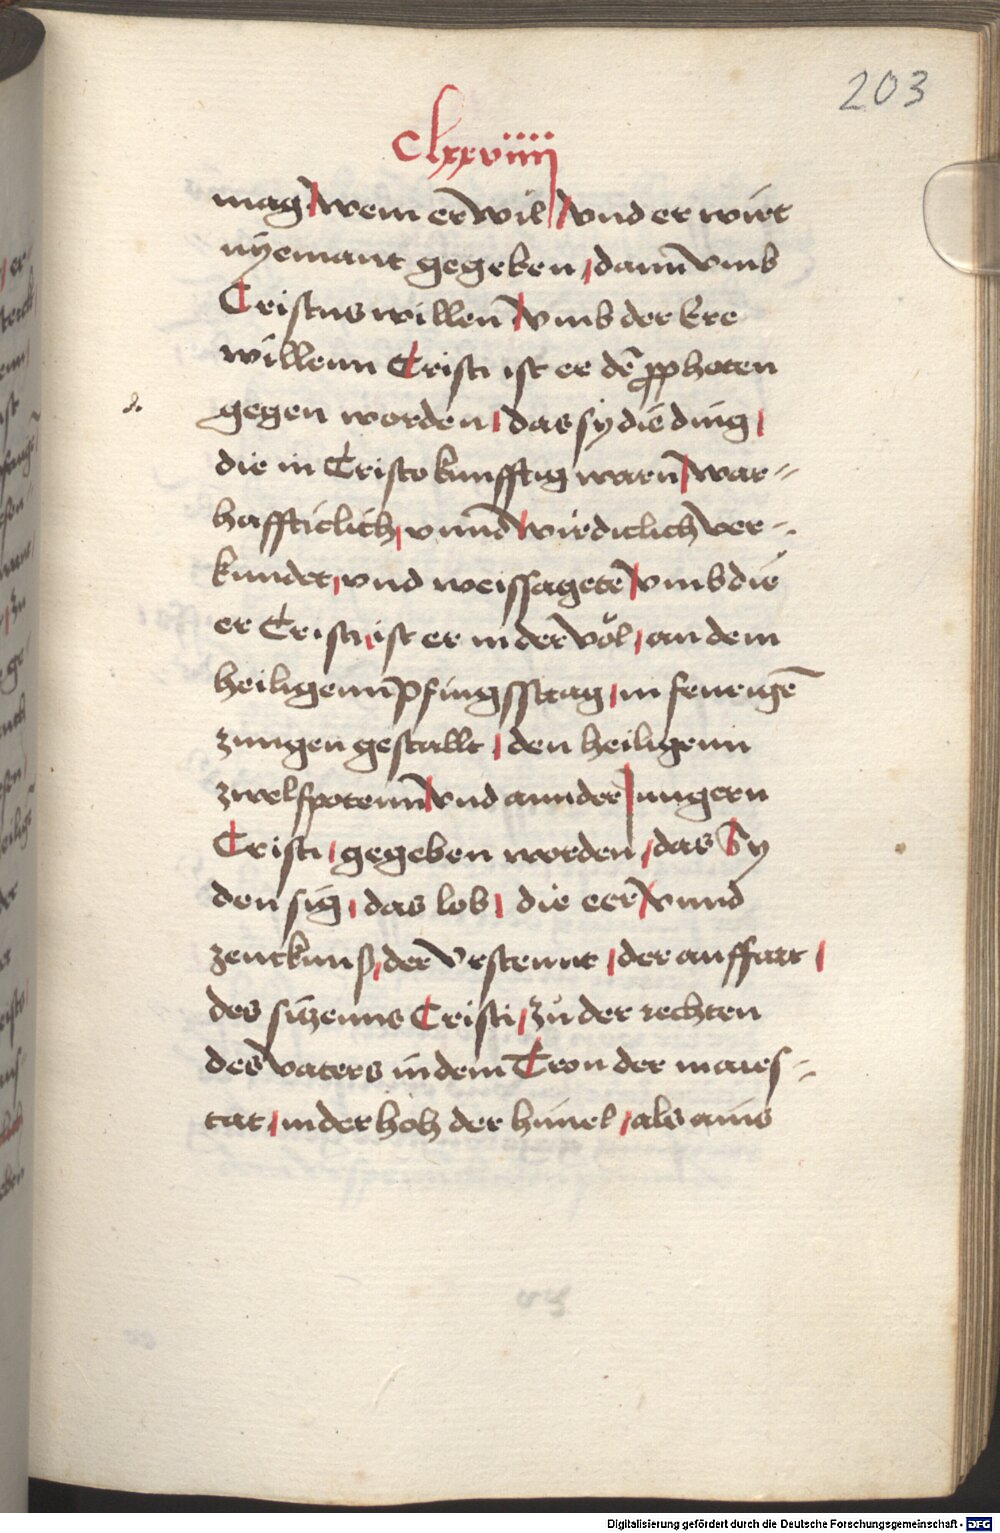 203
clxxxviiij
mag / wem er wil / vnd er wirt
nyemant gegeben / dann vmb
Cristus willen / vmb der Ere
willenn Cristi ist er dē ppheten
gegen worden / das sy die ding /
die in Cristo kunfftig warn̄ / war=
haffticlich / vnnd wirdiclich ver=
kundet / vnd weissagetē / vmb die
er Cristi / ist er in der völ / an dem
heiligenn pfingsstag / in feurigē
zungen gestallt / den heiligenn
zwelfpotenn / vnd annder jungern
Cristi / gegeben worden / das Sy
den sig / das lob / die eer / vnnd
zeuckunß / der Vrstennt / der auffart /
des sitzenns Cristi / zů der rechten
des vaters in dem Tron der maies=
tat / in der hoh der himel / als ains
Digitalisierung gefördert durch die Deutsche Forschungsgemeinschaft - DFG